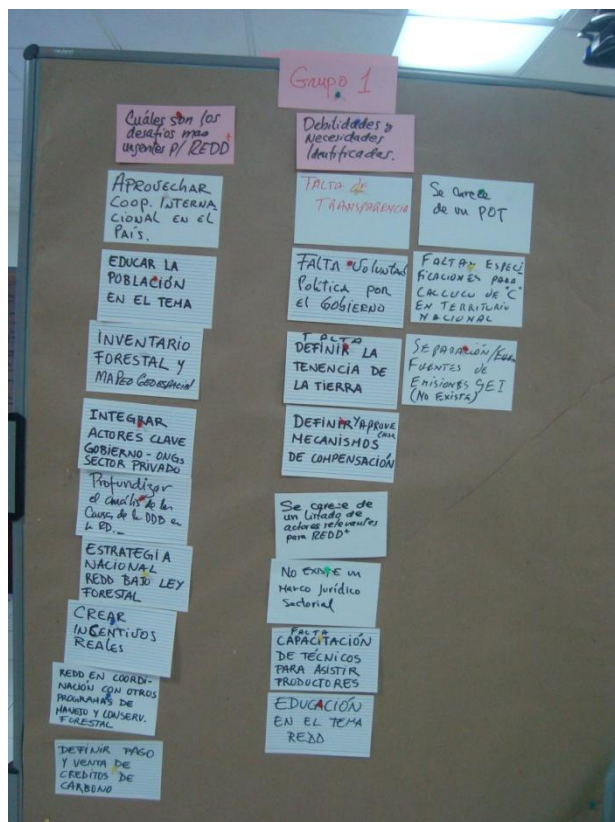 Grupo 1
Cuáles son los
desafios mas
urgentes P/ REDD+
APROVECHAR
COOP. INTERNA
CIONAL EN EL
PAÍS.
EDUCAR LA
POBLACIÓN
EN EL TEMA
INVENTARIO
FORESTAL Y
MAPEO GEOESPACIAL
INTEGRAR
ACTORES CLAVE
GOBIERNO - ONGs
SECTOR PRIVADO
Profundizar
el análisis de las
Causas de la DDB en
la RD._
ESTRATEGIA
NACIONAL
REDD BAJO LEY
FORESTAL
CREAR
INCENTIVOS
REALES
REDD EN COORDI-
NACIÓN CON OTROS
PROGRAMAS DE
MANEJO Y CONSERV.
FORESTAL
DEFINIR PAGO
Y VENTA DE
CREDITOS DE
CARBONO
Debilidades y
Necesidades
Identificadas.
FALTA DE
TRANSPARENCIA
FALTA Voluntad
Política por
el GOBIERNO
FALTA
DEFINIR LA
TENENCIA DE
LA TIERRA
DEFINIR Y APROVE
CHAR
MECANISMOS
DE COMPENSACIÓN
Se carece de
un Listado de
actores relevantes
para REDD+
NO EXISTE un
Marco Jurídico
Sectorial
FALTA
CAPACITACIÓN
DE TÉCNICOS
PARA ASISTIR
PRODUCTORES
EDUCACIÓN
EN EL TEMA
REDD
Se carece
de un POT
FALTAN ESPECI
FICACIONES PARA
CALCULO DE "C"
EN TERRITORIO
NACIONAL
SEPARACIÓN/
FUENTES DE
EMISIONES GEI
(NO EXISTE)